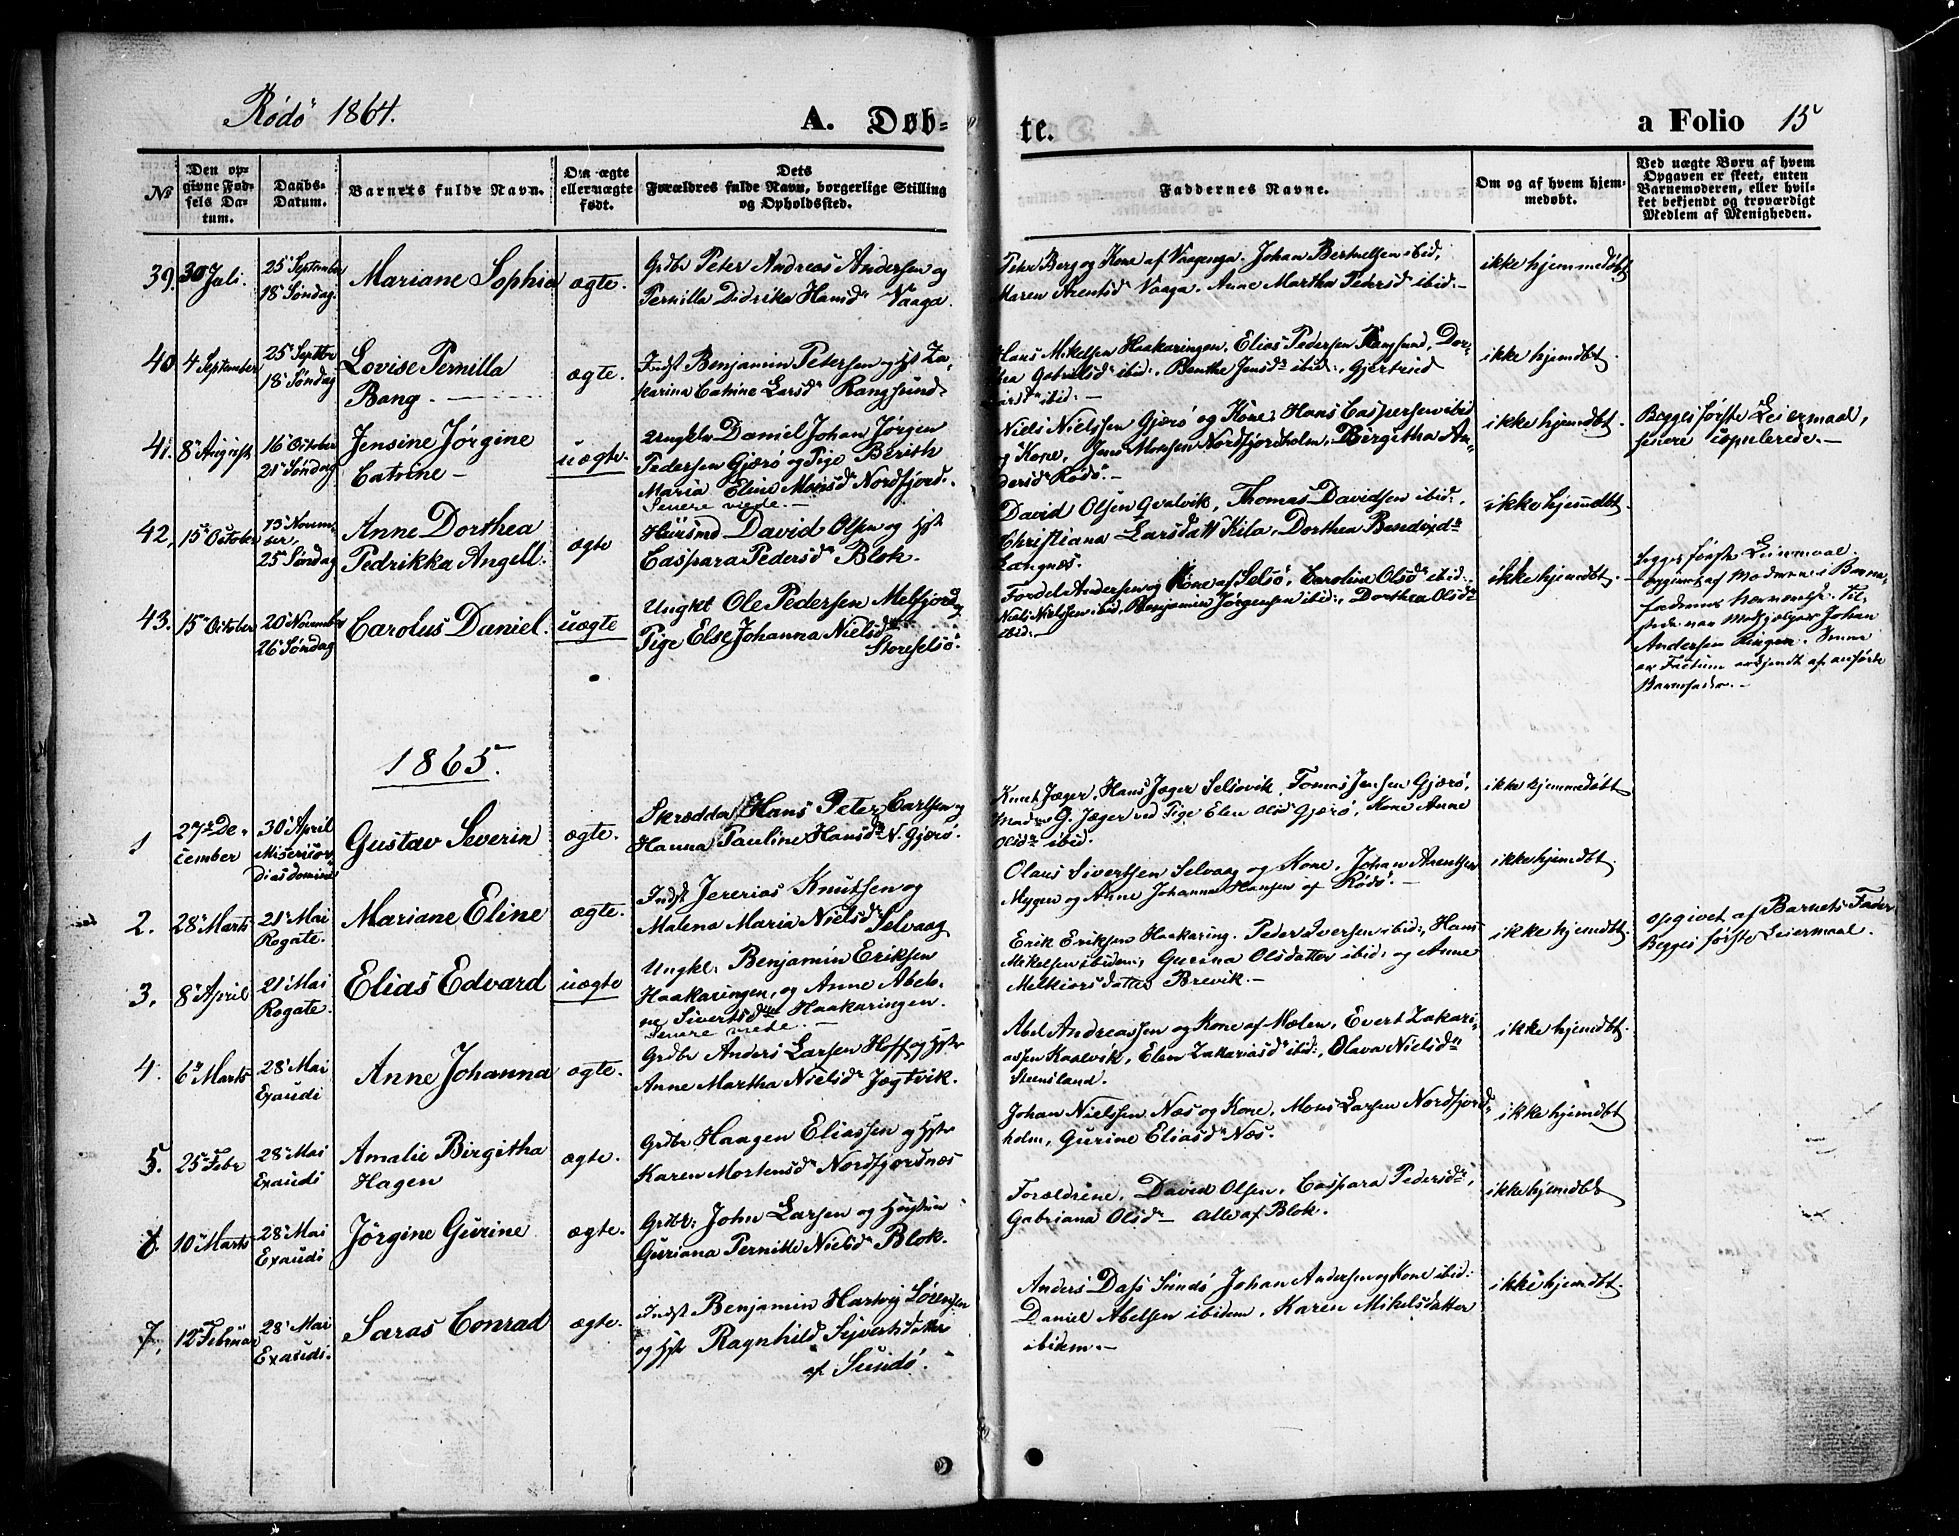 Rødö 1864.
A. Døb-
te.
a Folio 15
No
Den op-
givne Fød-
sels Da-
tum.
Daabs-
Datum.
Barnets fulde Navn.
Om ægte
eller uægte
født.
Dets
Forældres fulde Navn, borgerlige Stilling
og Opholdssted.
Faddernes Navne.
Om og af hvem hjem-
medøbt.
Ved uægte Børn af hvem
Opgaven er skeet, enten
Barnemoderen, eller hvil-
ket bekjendt og troværdigt
Medlem af Menigheden.
39. 30 Juli.
25 September
18 Søndag.
Mariane Sophia
ægte.
Grdbr Peter Andreas Andersen og
Pernilla Didrika Hansd Vaaga.
Peter Berg og Kone af Vaagenga. Johan Berthelsen ibid,
Maren Arentsd Vaaga. Anne Martha Pedersd ibid.-
ikke hjemmedøbt
40 4 September
25 Septbr
18 Søndag
Lovise Pernilla
Bang.
ægte.
Indst Benjamin Petersen og Hst Za-
karina Catrine Larsd Rangsund.
Hans Mikelsen Haakaringen, Elias Pedersen Rangsund, Dor-
thea Gabrielsd ibid., Benthe Jensd ibid., Gjertrud
ibid.-
ikke hjemdbt
41. 8 August
16 October
21 Søndag
Jensine Jørgine
Catrine -
uægte.
Ungklr Daniel Johan Jørgen
Pedersen Gjærø og Pige Berith
Maria Eline Monsd Nordfjord.
Niels Nielssen Gjærö og Kone, Hans Caspersen ibid
og Kone, Jens Monsen Nordfjordholm, Birgitha An-
dersd Rødö.-
ikke hjemdbt.
Begges første Leiermaal,
senere copulerede.-
42, 15 October
13 Novem-
ber,
25 Søndag
Anne Dorthea
Pedrikka Angell.
ægte
Huusmd David Olsen og Hst
Caspara Pedersd Blok.
David Olsen Qvalvik, Thomas Davidsen ibid.
Christiana Larsdatt Kila, Dorthea Bendixd
Langnæs.
ikke hjemdbt
43. 15 October
20 November
26 Søndag
Carolus Daniel.
uægte
Ungkl Ole Pedersen Melfjord og
Pige Else Johanna Nielsd
Storeselsö.
Fordel Andersen og Kone af Selsö, Carolina Olsd ibid.,
Niels Nielssen ibid, Benjamin Jørgensen ibid., Dorthea Olsd
ibid.-
ikke hjemdbt.
Begges første Leiermaal.
opgivet af Moderen i Barne-
faderens Nærværelse. Til-
stede var Medhjelper Johan
Andersen Ringen.
Factum erkjendt af anførte
Barnefader.-
1865.
1
27 De-
cember
30 April
Misericor-
dias domini
Gustav Severin
ægte.
Skrædder Hans Peter Carlsen og
Hanna Pauline Hansd N. Gjærö.
Knut Jæger, Hans Jæger Selsövik, Tomas Jensen Gjærö,
Madm G. Jæger ved Pige Elen Olsd Gjærö, Kone Anne
Olsd ibid.
ikke hjemmedøbt
2. 28 Marts
21 Mai
Rogate.
Mariane Eline
ægte.
Indst Jererias Knutsen og
Malena Maria Nielsd Selvaag
Olaus Sivertsen Selvaag og Kone, Johan Arentsen
Mygen og Anne Johanna Hansen af Rödö.-
ikke hjemdbt.
3, 8 April
21 Mai
Rogate.
Elias Edvard
uægte
Ungkl. Benjamin Eriksen
Haakaringen, og Anne Abelo-
ne Sivertsd Haakaringen.
Erik Eriksen Haakaring. Peder Iversen ibid., Hans
Mikelsen ibidem, Gurina Olsdatter ibid. og Anne
Melkiorsdatter Brevik.-
ikke hjemdbt.
Opgivet af Barnets Fader
Begges første Leiermaal.
4. 6 Marts
28 Mai
Exaudi
Anne Johanna
ægte.
Grdbr Anders Larsen Hoff og Hstr
Anne Martha Nielsd Jægtvik.
Abel Andreassen og Kone af Mælen, Evert Zakari-
assen Kaalvik, Elen Zakariasd ibid., Olava Nielsd
Steensland.
ikke hjemdbt.
5. 25 Febr
28 Mai
Exaudi
Amalie Birgitha
Hagen
ægte.
Grdbr Haagen Eliassen og Hstr
Karen Mortensd Nordfjordnæs
Johan Nielssen Næs og Kone, Mons Larsen Nordfjord-
holm, Gurine Eliasd Næs.
ikke hjemdbt
6. 10 Marts
28 Mai
Exaudi
Jørgine Gurine
ægte.
Grdbr. John Larsen og Hustru
Guriana Pernille Nielsd Blok.
Forældrene, David Olsen, Caspara Pedersd,
Gabriana Olsd - Alle af Blok.
ikke hjemdbt
7, 12 Februar
28 Mai
Exaudi.
Saras Conrad
ægte.
Indst Benjamin Hartvig Lorensen
og Hst Ragnhild Sjvertsdatter
af Sundö.
Anders Dass Sundö Johan Andersen og Kone ibid.
Daniel Abelsen ibidem, Karen Mikelsdatter
ibidem.-
ikke hjemdbt.